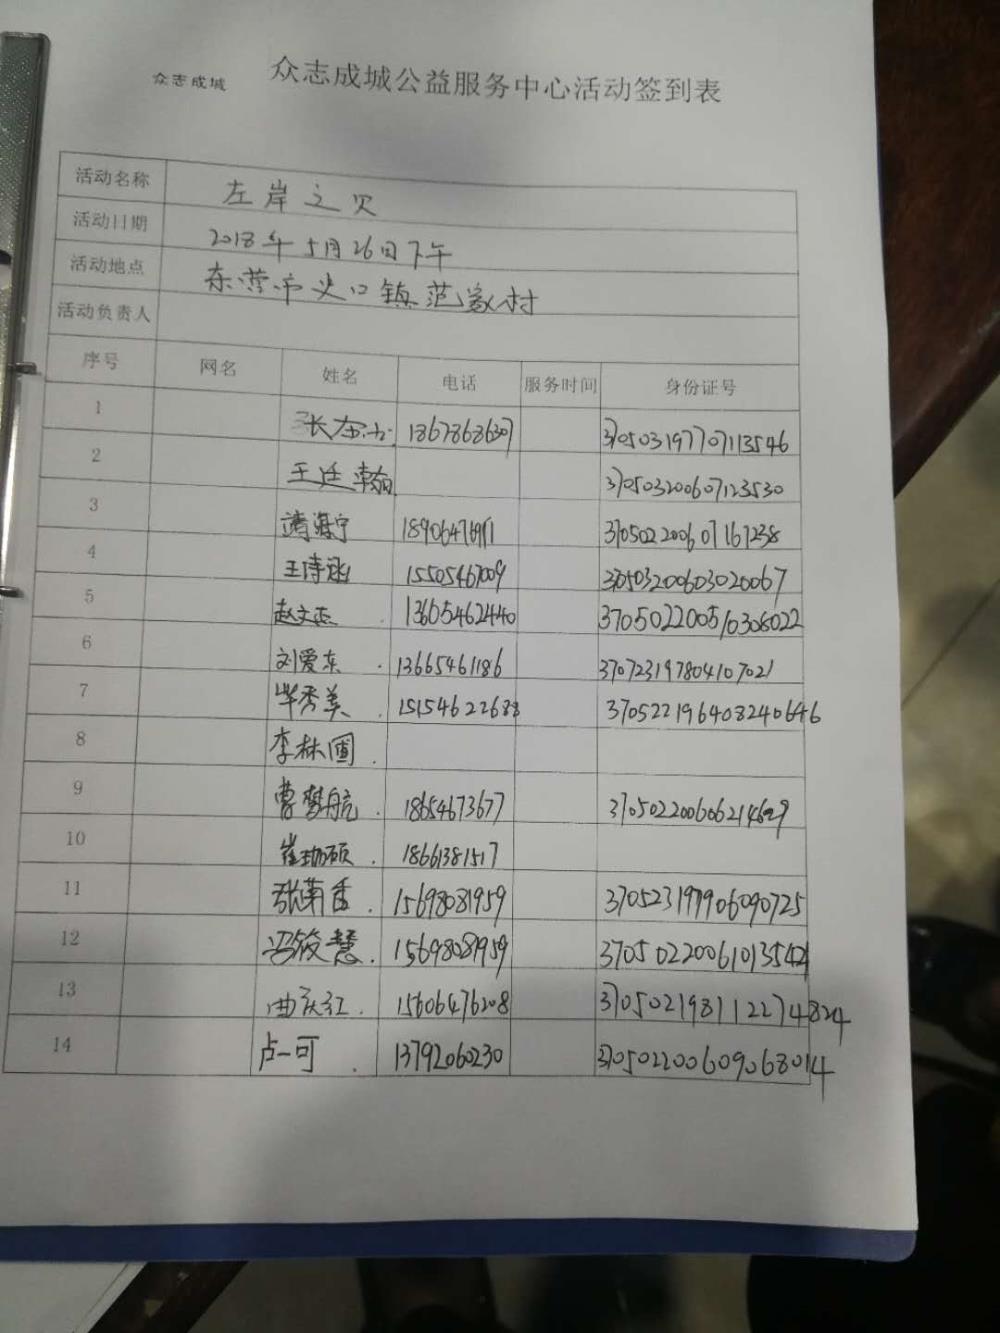 众志成城 众志成城公益服务中心活动签到表
活动名称 左岸之贝
活动日期 2018年5月26日下午
活动地点 东营市史口镇范家村
活动负责人
序号 网名 姓名 电话 服务时间 身份证号
1 370503197707113546
2 王廷翰 370503200607123530
3 靖海宁 370502200607167238
4 王诗涵 15505467009 370503200603020067
5 赵文杰 13605462440 370502200510308022
6 刘爱东 13665461186 370723197804107021
7 毕秀美 15154622688 370522196408240646
8 李林圃
9 曹梦航 18654673677
10 崔珈硕 18661381517
11 张菊香 15698081959 370523197906090725
12 冯筱慧 15698081959
13 曲庆红 15606476208 370502198112274824
14 卢一可 13792060230 370502200609068014